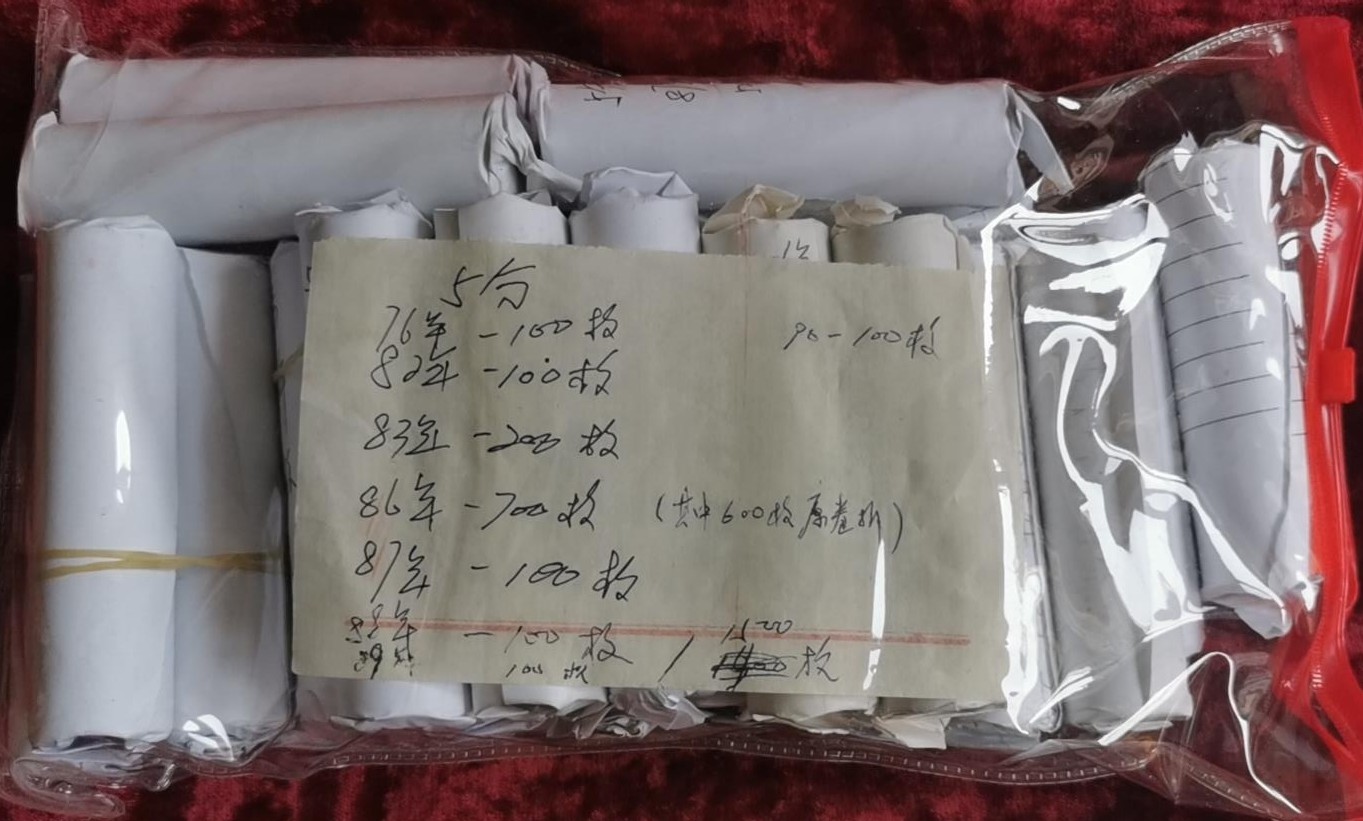 5分
76年 -100枚
90-100枚
82年 -100枚
83年 -200枚
86年 -700枚 (其中600枚原卷拆)
87年 -100枚
88年 -100枚 / 1500枚
89年 100枚